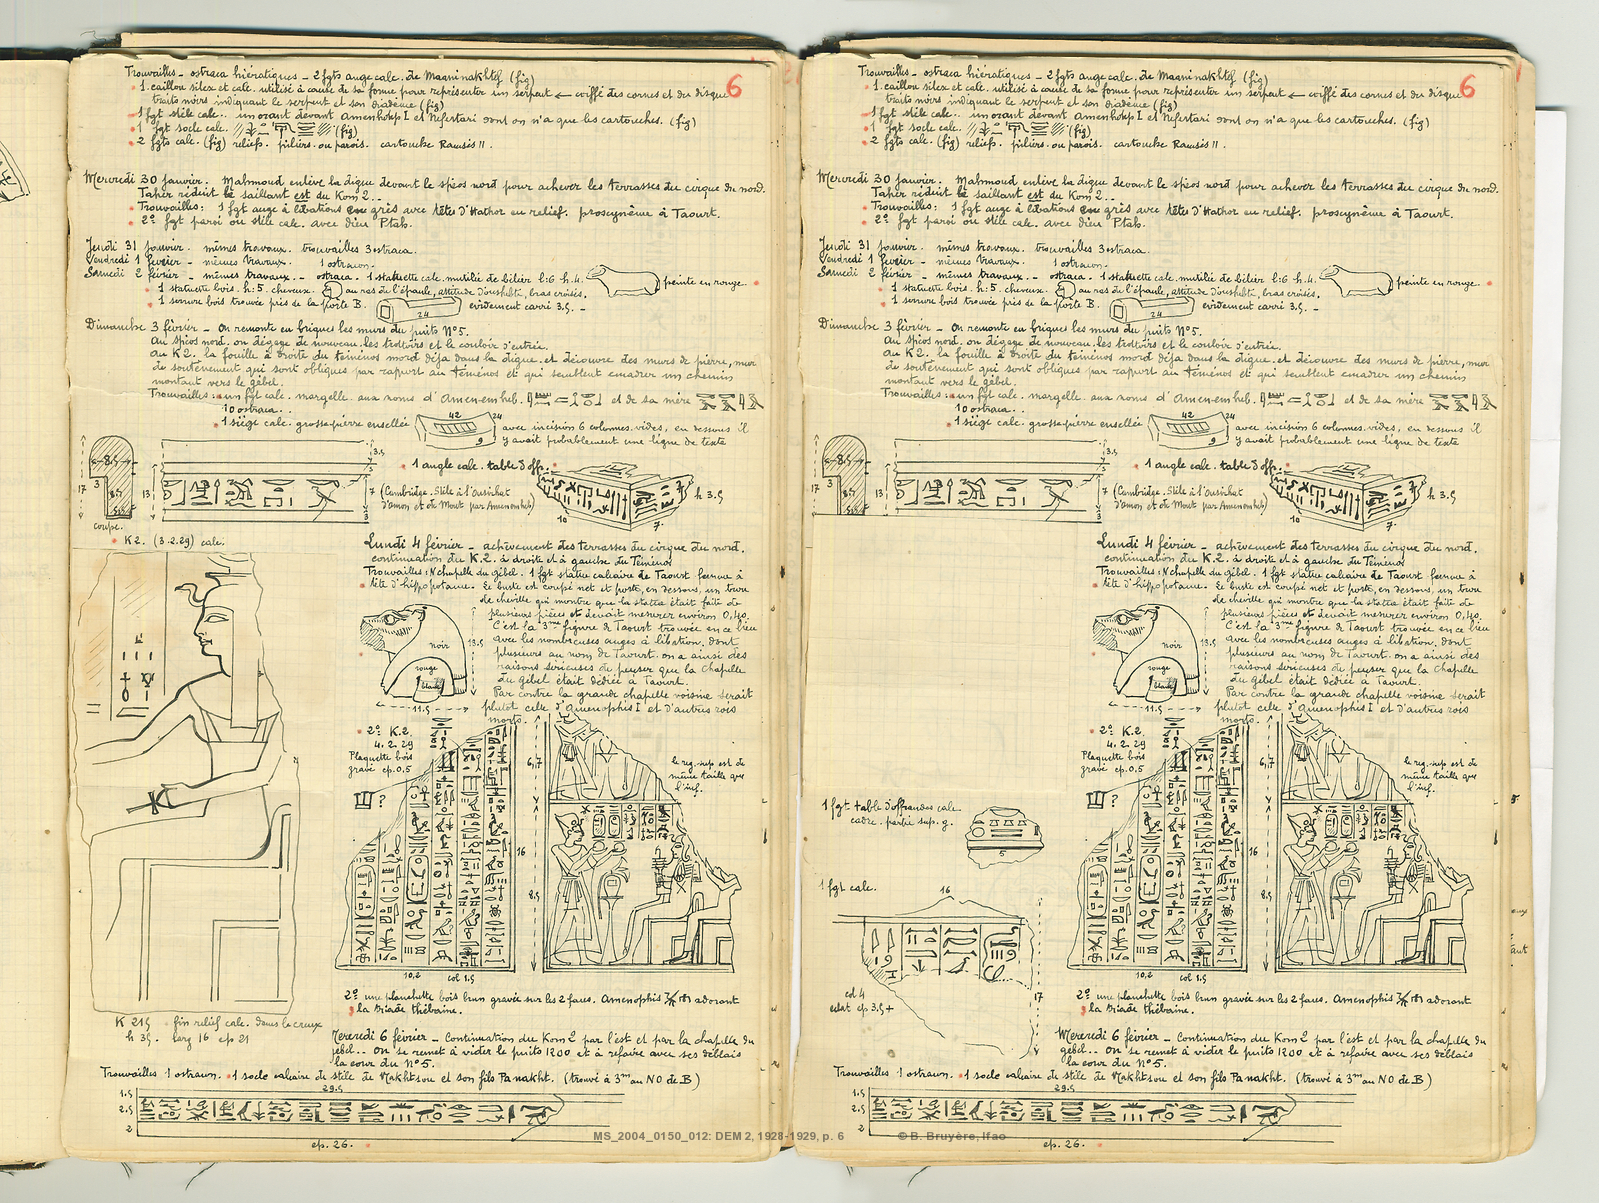 6
Trouvailles - ostraca hiératiques - 2 fgts auge calc. de Maaninakhtef (fig)
1 caillou silex et calc. utilisé à cause de sa forme pour représenter un serpent ← coiffé des cornes et du disque
traits noirs indiquant le serpent et son diadème (fig)
1 fgt stèle calc. un orant devant Amenhotep I et Nefertari dont on n'a que les cartouches. (fig)
1 fgt socle calc. (fig)
2 fgts calc. (fig) reliefs. piliers ou parois. cartouche Ramsès II.
Mercredi 30 janvier. Mahmoud enlève la digue devant le spéos nord pour achever les terrasses du cirque du nord.
Taher réduit le saillant est du Kom 2..
Trouvailles: 1 fgt auge à libations en grès avec têtes d'Hathor en relief. proscynème à Taourt.
2° fgt paroi ou stèle calc. avec dieu Ptah.
Jeudi 31 janvier. mêmes travaux. trouvailles 3 ostraca.
Vendredi 1 février - mêmes travaux. 1 ostracon.
Samedi 2 février - mêmes travaux. - ostraca. 1 statuette calc. mutilée de bélier l:6 h.4. peinte en rouge.
1 statuette bois. h:5. cheveux au ras de l'épaule, attitude d'oushebti, bras croisés.
1 serrure bois trouvée près de la porte B. 24 évidement carré 3.5. -
Dimanche 3 février - On remonte en briques les murs du puits N°5.
Au spéos nord. on dégage de nouveau les trottoirs et le couloir d'entrée.
Au K2. la fouille à droite du téménos mord déjà dans la digue et découvre des murs de pierre, mur
de soutènement qui sont obliques par rapport au téménos et qui semblent encadrer un chemin
montant vers le gébel.
Trouvailles: un fgt calc. margelle aux noms d'Amenemheb. et de sa mère
10 ostraca..
1 siège calc. grosse pierre ensellée 42 24 9 avec incision 6 colonnes vides, en dessous il
y avait probablement une ligne de texte
8.5 3 17 8.5 coupe.
13 3.5 3 7 3
(Cambridge. Stèle à l'Ousirhat
d'amon et de Mout par Amenemheb)
1 angle calc. table d'off. 10 7 h 3.5
K2. (3.2.29) calc.
K 215 fin relief calc. dans le creux
h 35. larg 16 ep 21
Lundi 4 février - achèvement des terrasses du cirque du nord.
continuation du K.2. à droite et à gauche du Téménos
Trouvailles: N chapelle du gébel. 1 fgt statue calcaire de Taourt femme à
tête d'hippopotame. Le buste est coupé net et porte, en dessous, un trou
de cheville qui montre que la statue était faite de
plusieurs pièces et devait mesurer environ 0,40.
C'est la 3ème figure de Taourt trouvée en ce lieu
avec les nombreuses auges à libation, dont
plusieurs au nom de Taourt. on a ainsi des
raisons sérieuses de penser que la chapelle
du gébel était dédiée à Taourt.
Par contre la grande chapelle voisine serait
plutôt celle d'Amenophis I et d'autres rois
morts.
noir
rouge
blanc
13.5
11.5
2° K.2.
4.2.29
Plaquette bois
gravé ep. 0.5
?
6,7
16
8.5
10,2 col 1.5
le reg. sup est de
même taille que
l'inf.
2° une planchette bois brun gravée sur les 2 faces. Amenophis adorant
la triade thébaine.
Mercredi 6 février - Continuation du Kom 2 par l'est et par la chapelle du
gébel.. On se remet à vider le puits 1200 et à refaire avec ses déblais
la cour du N°5.
Trouvailles 1 ostracon. 1 socle calcaire de stèle de Nakhtsou et son fils Panakht. (trouvé à 3m au NO de B)
29.5
1.5
2.5
2
ep. 26.
6
Trouvailles - ostraca hiératiques - 2 fgts auge calc. de Maaninakhtef (fig)
1 caillou silex et calc. utilisé à cause de sa forme pour représenter un serpent ← coiffé des cornes et du disque
traits noirs indiquant le serpent et son diadème (fig)
1 fgt stèle calc. un orant devant Amenhotep I et Nefertari dont on n'a que les cartouches. (fig)
1 fgt socle calc. (fig)
2 fgts calc. (fig) reliefs. piliers ou parois. cartouche Ramsès II.
Mercredi 30 janvier. Mahmoud enlève la digue devant le spéos nord pour achever les terrasses du cirque du nord.
Taher réduit le saillant est du Kom 2..
Trouvailles: 1 fgt auge à libations en grès avec têtes d'Hathor en relief. proscynème à Taourt.
2° fgt paroi ou stèle calc. avec dieu Ptah.
Jeudi 31 janvier. mêmes travaux. trouvailles 3 ostraca.
Vendredi 1 février - mêmes travaux. 1 ostracon.
Samedi 2 février - mêmes travaux. - ostraca. 1 statuette calc. mutilée de bélier l:6 h.4. peinte en rouge.
1 statuette bois. h:5. cheveux au ras de l'épaule, attitude d'oushebti, bras croisés.
1 serrure bois trouvée près de la porte B. 24 évidement carré 3.5. -
Dimanche 3 février - On remonte en briques les murs du puits N°5.
Au spéos nord. on dégage de nouveau les trottoirs et le couloir d'entrée.
Au K2. la fouille à droite du téménos mord déjà dans la digue et découvre des murs de pierre, mur
de soutènement qui sont obliques par rapport au téménos et qui semblent encadrer un chemin
montant vers le gébel.
Trouvailles: un fgt calc. margelle aux noms d'Amenemheb. et de sa mère
10 ostraca..
1 siège calc. grosse pierre ensellée 42 24 9 avec incision 6 colonnes vides, en dessous il
y avait probablement une ligne de texte
8.5 3 17 8.5
13 3.5 3 7 3
(Cambridge. Stèle à l'Ousirhat
d'amon et de Mout par Amenemheb)
1 angle calc. table d'off. 10 7 h 3.5
Lundi 4 février - achèvement des terrasses du cirque du nord.
continuation du K.2. à droite et à gauche du Téménos
Trouvailles: N chapelle du gébel. 1 fgt statue calcaire de Taourt femme à
tête d'hippopotame. Le buste est coupé net et porte, en dessous, un trou
de cheville qui montre que la statue était faite de
plusieurs pièces et devait mesurer environ 0,40.
C'est la 3ème figure de Taourt trouvée en ce lieu
avec les nombreuses auges à libation, dont
plusieurs au nom de Taourt. on a ainsi des
raisons sérieuses de penser que la chapelle
du gébel était dédiée à Taourt.
Par contre la grande chapelle voisine serait
plutôt celle d'Amenophis I et d'autres rois
morts.
noir
rouge
blanc
13.5
11.5
2° K.2.
4.2.29
Plaquette bois
gravé ep. 0.5
?
6,7
16
8.5
10,2 col 1.5
le reg. sup est de
même taille que
l'inf.
1 fgt table d'offrandes calc
cadre. partie sup. g.
5
1 fgt calc.
16
17
col 4
éclat ep 3.5+
2° une planchette bois brun gravée sur les 2 faces. Amenophis adorant
la triade thébaine.
Mercredi 6 février - Continuation du Kom 2 par l'est et par la chapelle du
gébel.. On se remet à vider le puits 1200 et à refaire avec ses déblais
la cour du N°5.
Trouvailles 1 ostracon. 1 socle calcaire de stèle de Nakhtsou et son fils Panakht. (trouvé à 3m au NO de B)
29.5
1.5
2.5
2
ep. 26.
MS_2004_0150_012: DEM 2, 1928-1929, p. 6 © B. Bruyère, Ifao